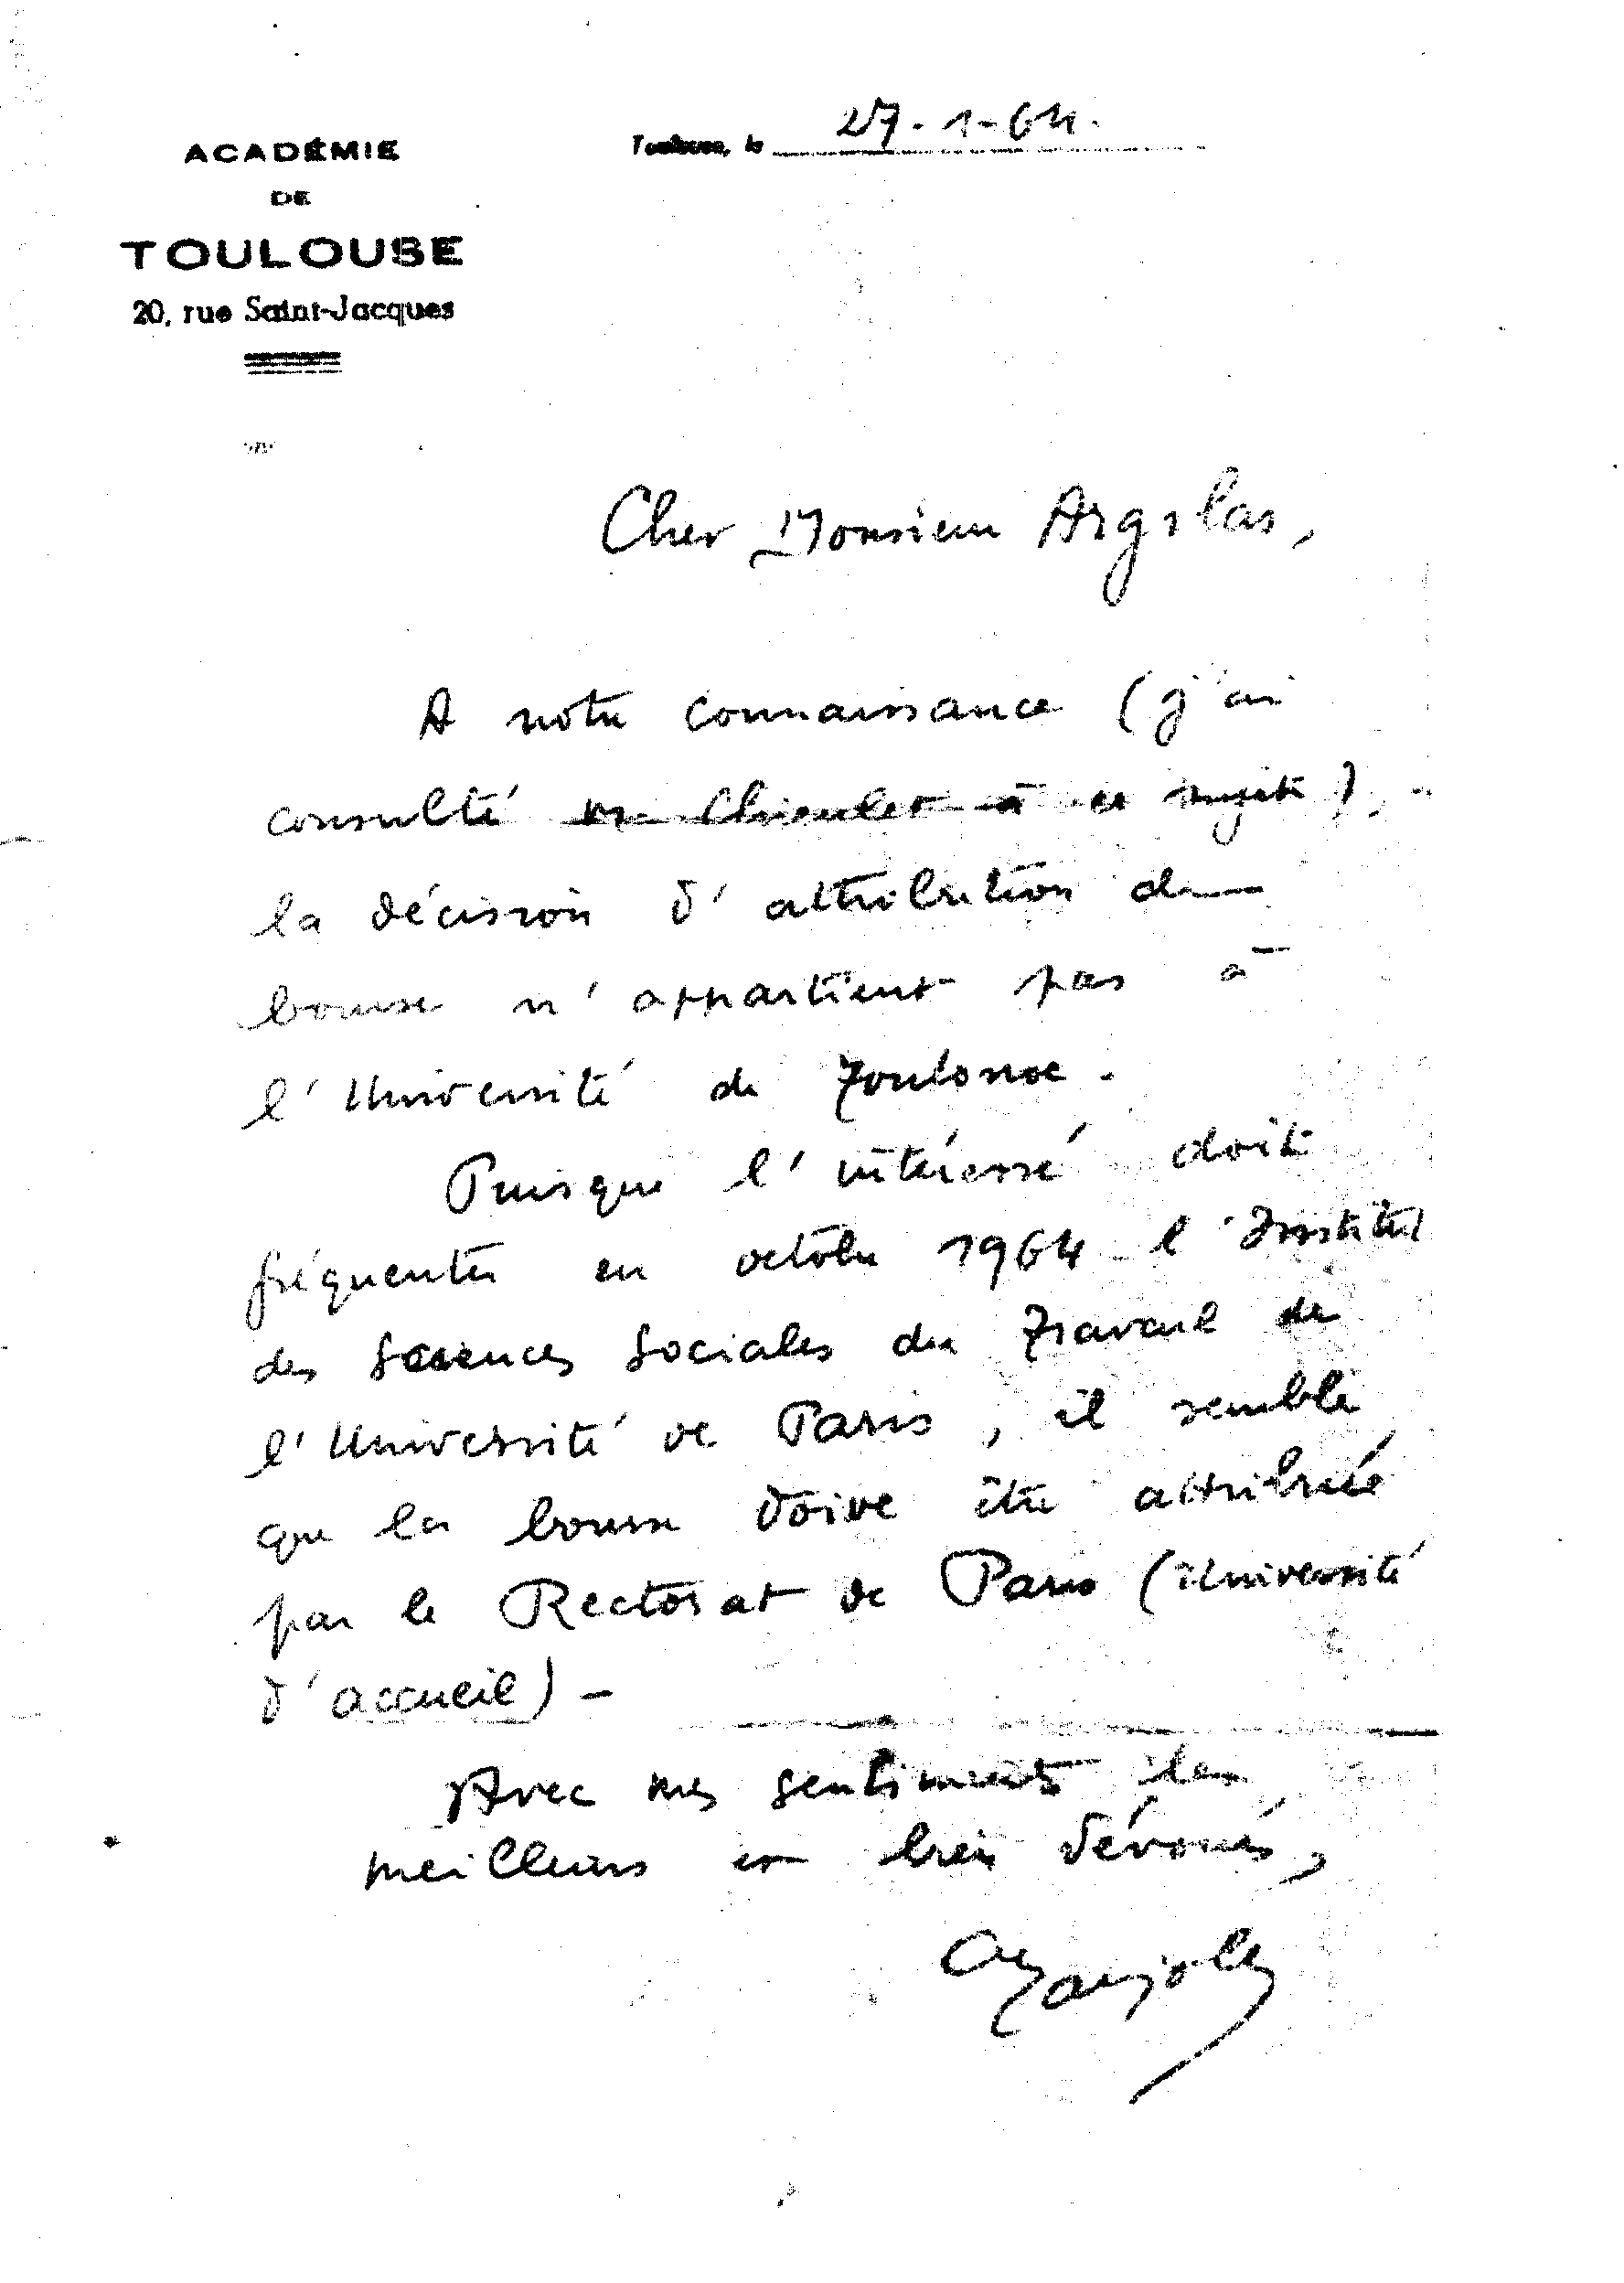 ACADÉMIE
DE
TOULOUSE
20, rue Saint-Jacques
Toulouse, le 27-1-64.
Cher Monsieur Argilas,
A notre connaissance (j'ai
consulté M. à ce sujet),
la décision d'attribution de
bourse n'appartient pas à
l'Université de Toulouse.
Puisque l'intéressé doit
fréquenter en octobre 1964 l'Institut
des Sciences Sociales du Travail de
l'Université de Paris, il semble
que la bourse doive être attribuée
par le Rectorat de Paris (Université
d'accueil) -
Avec mes sentiments les
meilleurs et bien dévoués,